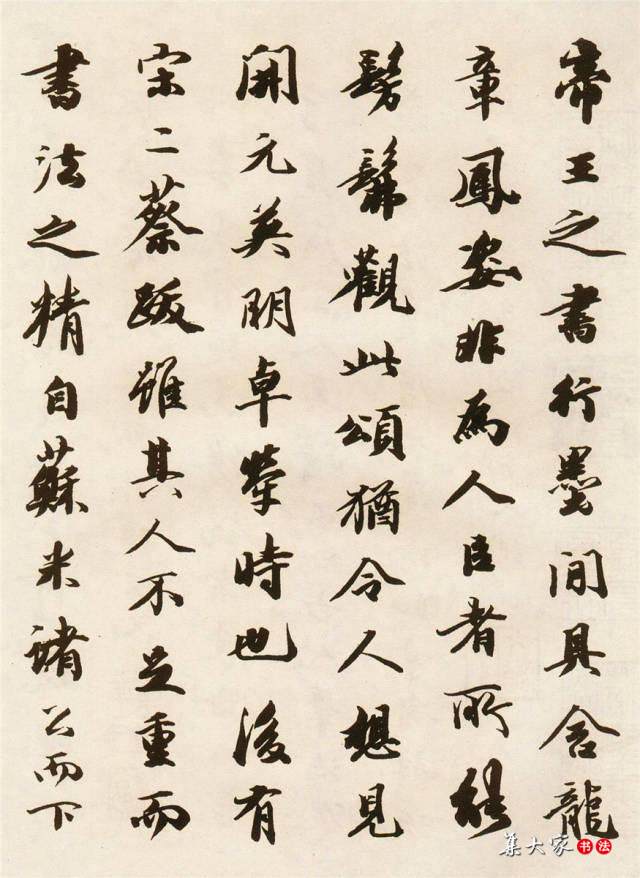 帝王之書行墨間具含龍
章鳳姿非為人臣者所能
髣髴觀此頌猶令人想見
開元英明卓犖時也後有
宋二蔡跋雖其人不足重而
書法之精自蘇米諸公而下
集大家书法